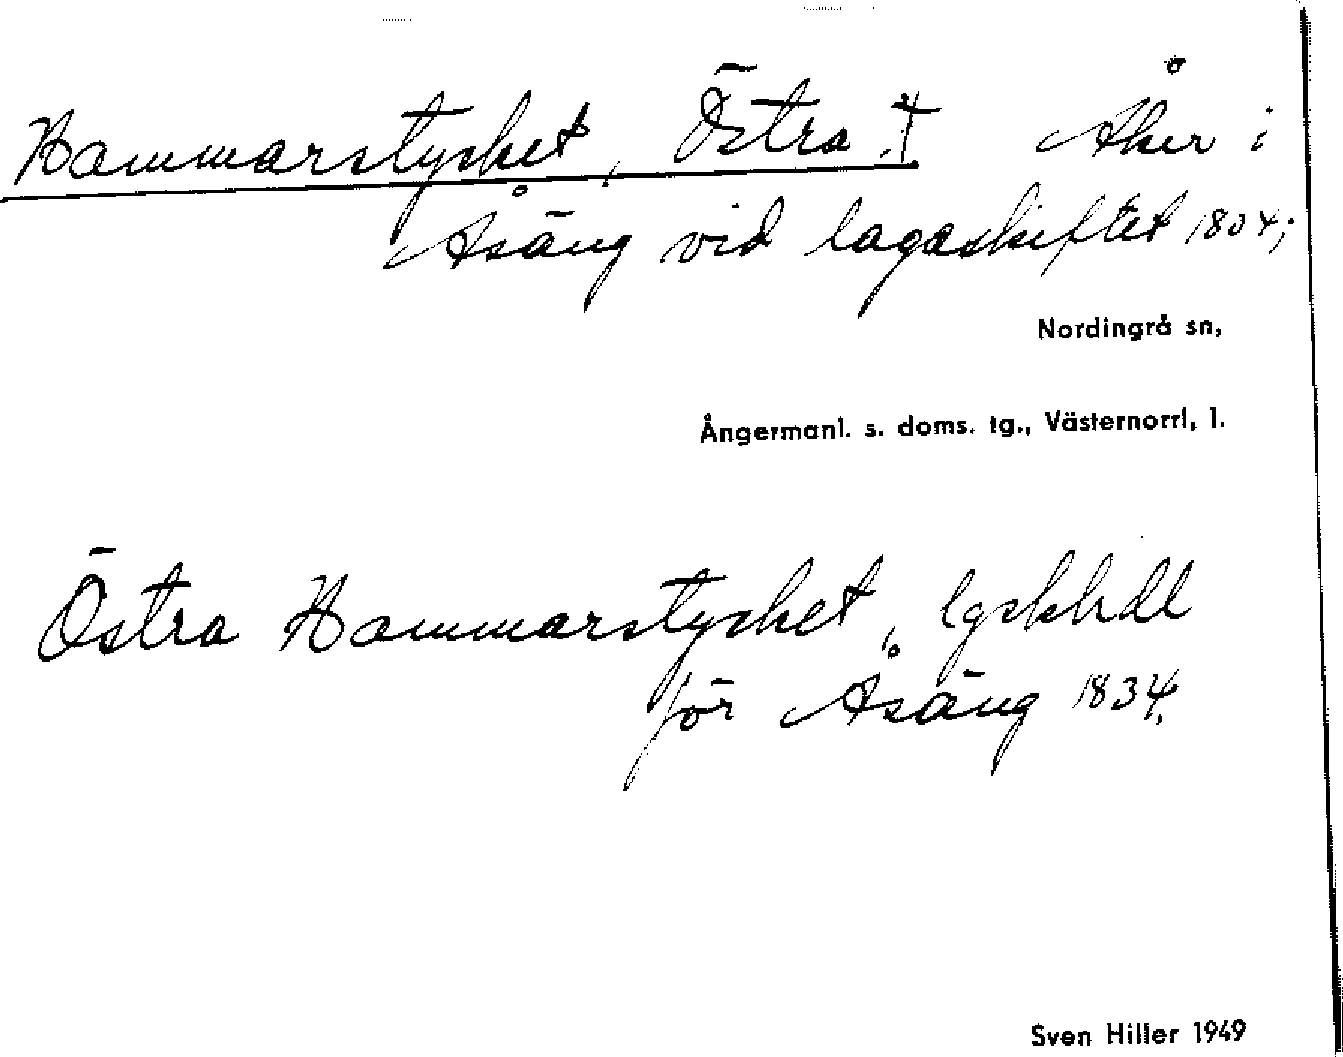 Hammarstycket, Östra † Åker i
Åsäng vid lagaskiftet 1834;
Nordingrå sn,
Ångermanl. s. doms. tg., Västernorrl, l.
Östra Hammarstycket, lgskhdl
för Åsäng 1834.
Sven Hiller 1949